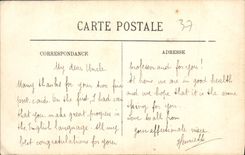 CARTE POSTALE
37
CORRESPONDANCE
ADRESSE
My dear Uncle
Many thanks for your two fine
post cards. On the first, I had seen
that you make great progress in
the English language. All my
best congratulations for your
professor and for you!
At home we are in good health
and we hope that it is the same
thing for you.
Love to all from
your affectionate niece
Henriette